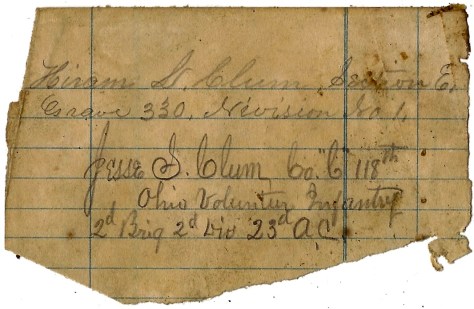 Hiram S. Clum, Section E.
Grave 330, Division No 1,
Jesse S. Clum, Co. "C" 118th
Ohio Volunteer Infantry
2d Brig 2d Div 23d A.C